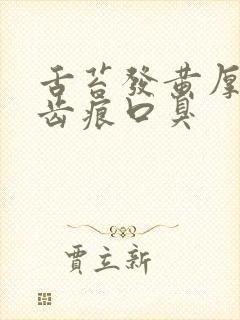 舌苔發黃厚
齒痕口臭
賈立新